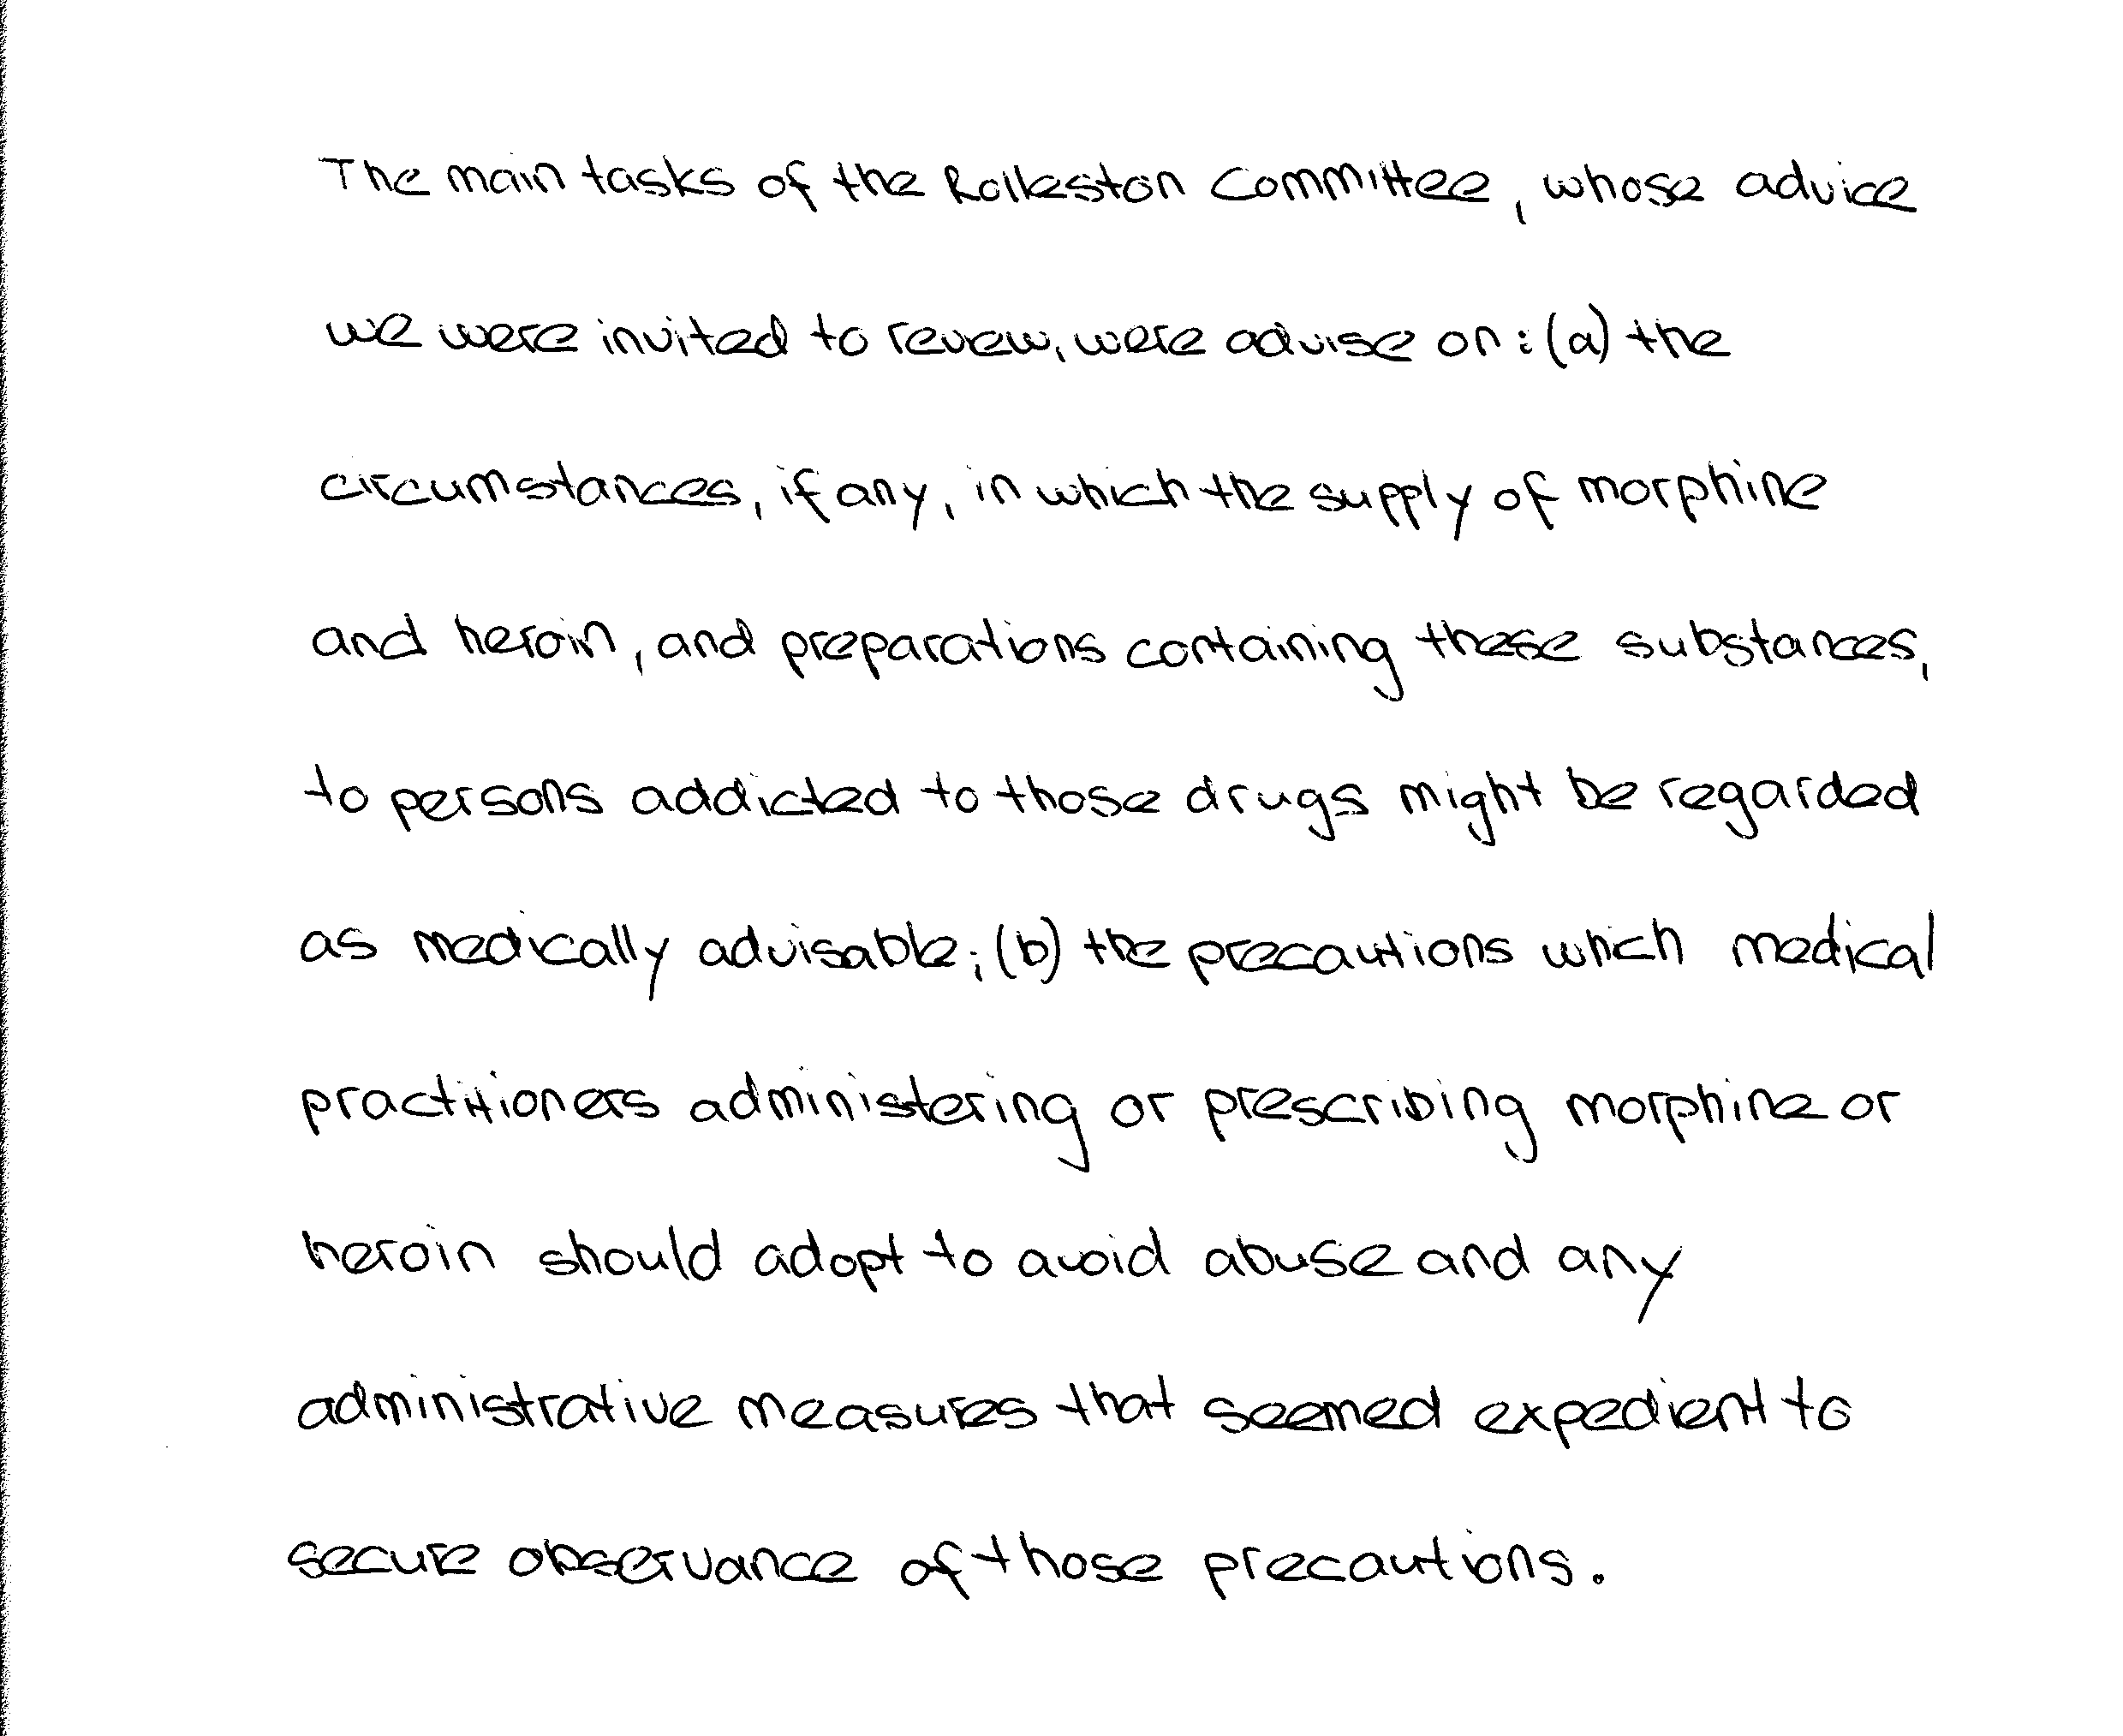 The main tasks of the Rolleston Committee, whose advice
we were invited to review, were advise on: (a) the
circumstances, if any, in which the supply of morphine
and heroin, and preparations containing these substances,
to persons addicted to those drugs might be regarded
as medically advisable; (b) the precautions which medical
practitioners administering or prescribing morphine or
heroin should adopt to avoid abuse and any
administrative measures that seemed expedient to
secure observance of those precautions.